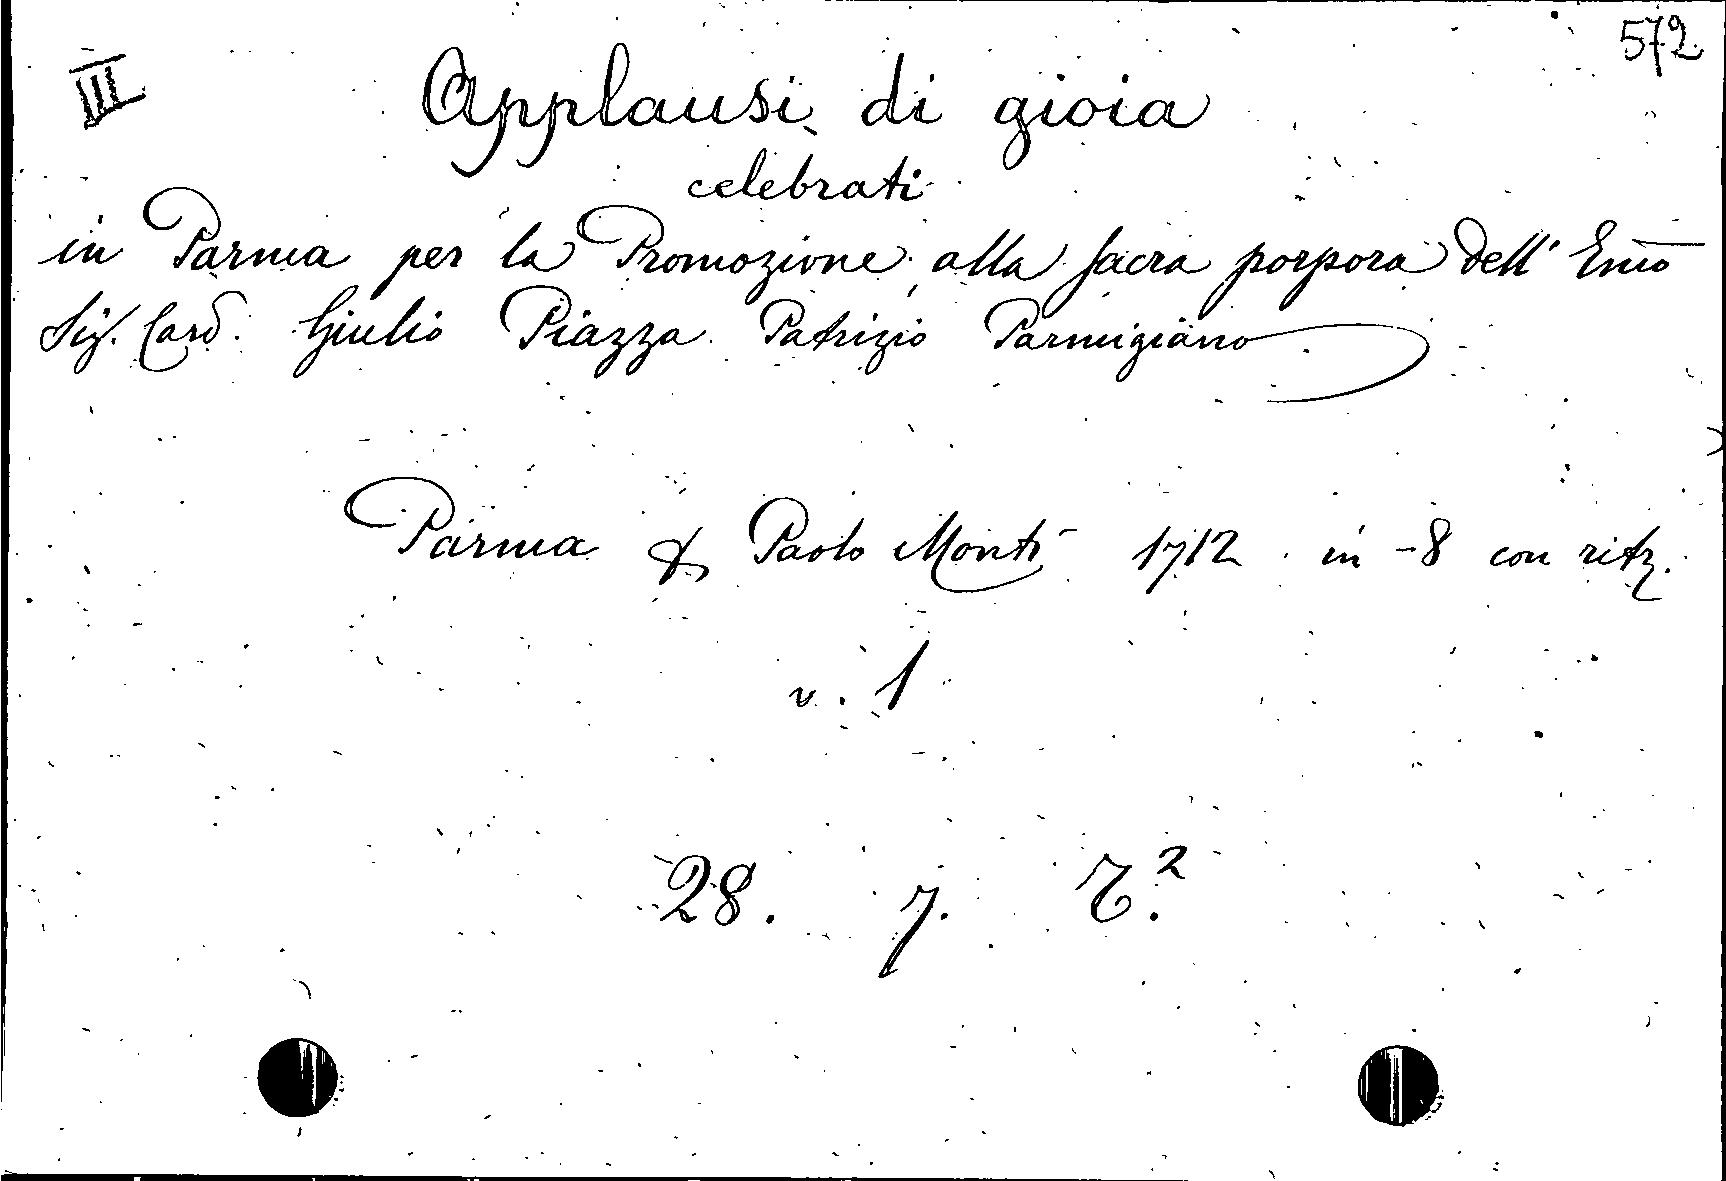 III
572
Applausi di gioia
celebrati
in Parma per la Promozione alla sacra porpora dell' Emo
Sig. Card. Giulio Piazza Patrizio Parmigiano
Parma Paolo Monti 1712 in -8 con ritr.
v. 1
28. 7.